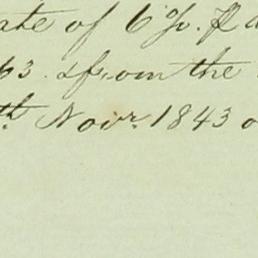 ate of 6 %. P a
63. from the
th Novr. 1843 o